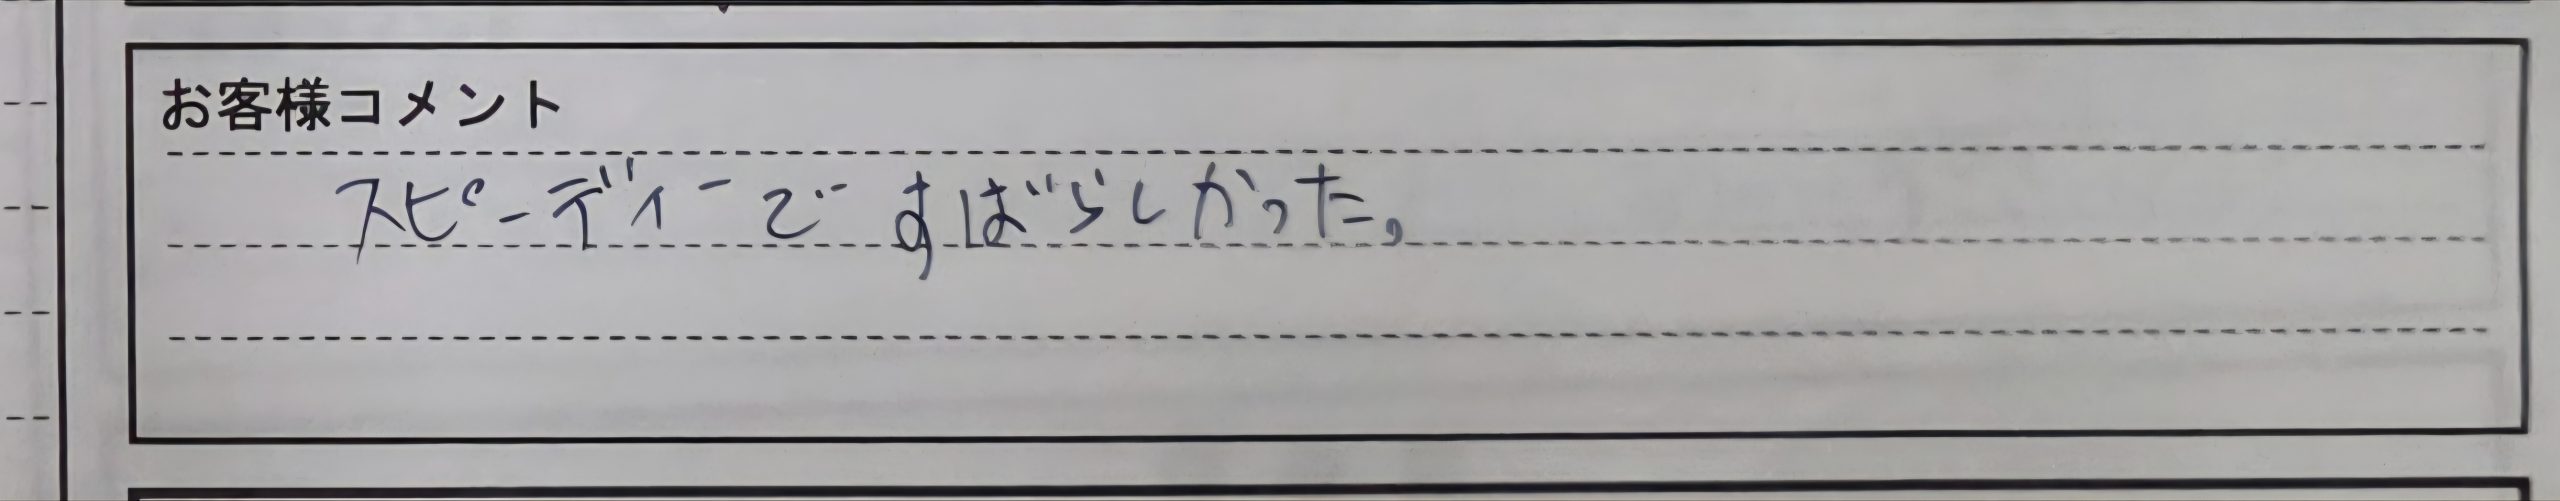 お客様コメント
スピーディーですばらしかった。